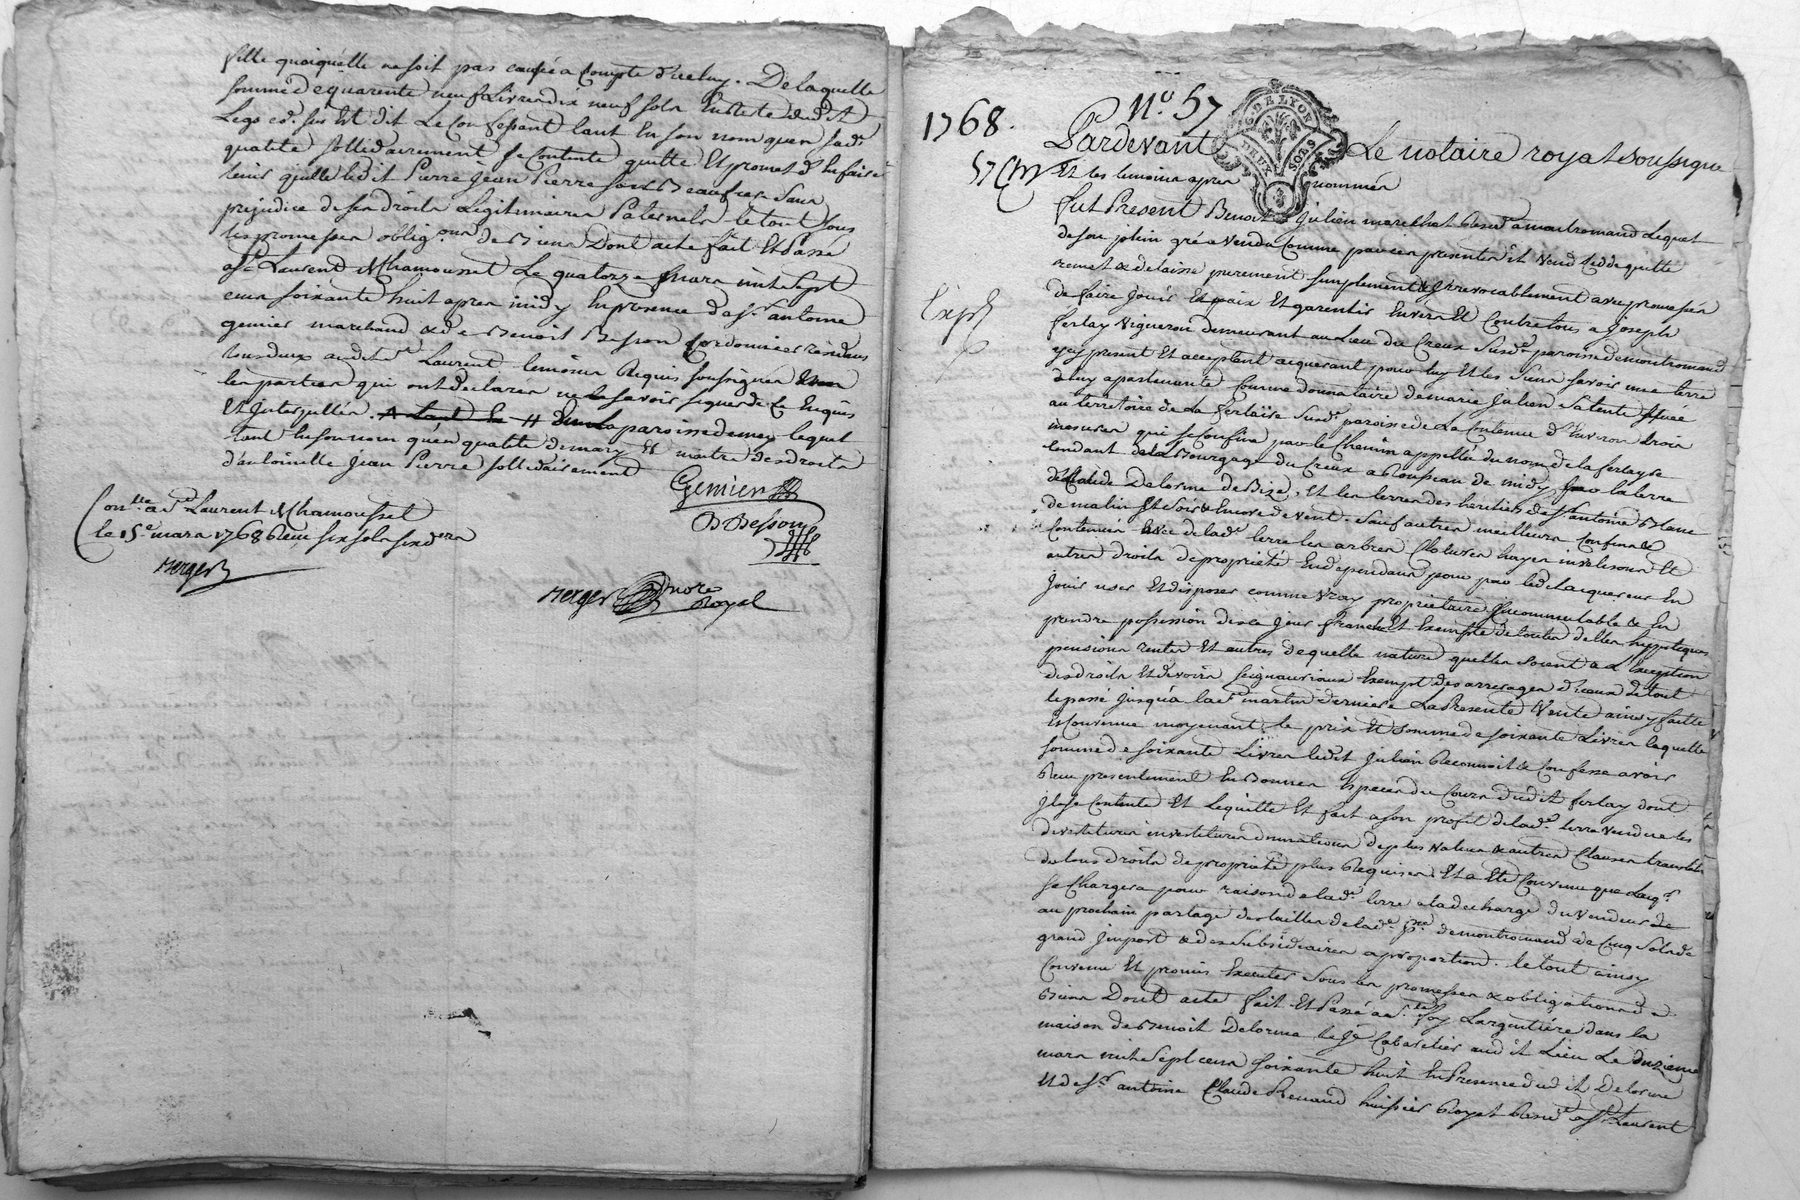 fille quoiquelle ne soit pas causée a Compte d'iceluy. De laquelle
somme de quarente neuf Livres dix neuf sols En Reste dud.t
Legs Est dit Le Confessant tant En son nom quen sad.e
qualité sollidairement se Contente quitte Et promet En faire
tenir quitte ledit Pierre Jean Pierre son Beaufrere Sans
prejudice de ses droits Legitimaires Paternels le tout sous
les promesses oblig.ons de Biens Dont acte fait Et Passé
a S.t Laurent de Chamousset Le quatorze mars mil sept
cens soixante huit apres midy En presence de s.r antoine
genier marchand & de Benoit Besson Cordonnier residens
tous deux audit s.t Laurent temoins Requis soussignés
les parties qui ont declarés ne le savoir signer de Ce Enquis
Et Interpellés. la paroisse de mey lequel
tant En son nom qu'en qualité de mary Et maitre des droits
d'antoinette Jean Pierre sollidairement
Genier
B Besson
Con.lle a S.t Laurent de Chamousset
le 15.e mars 1768 Reçu six sols six d.rs
Berger
Berger no.re Royal
1768.
N.o 57
G. DE LYON
DEUX SOLS
Pardevant Le notaire royal soussigné
57 Et les temoins apres nommés
fut Present Benoit Julien marchand Resid.t a montromand Lequel
de son plein gré a vendu Comme par ces presentes il vend Cedde quitte
remet & delaisse purement simplement & Irrevocablement avec promesses
de faire Jouir En paix Et garentir Envers Et Contre tous a Joseph
ferlay vigneron demeurant au Lieu du Creux susd.e paroisse de montromand
y cy present Et acceptant acquerant pour luy Et les siens savoir une terre
a luy apartenante Comme donnataire de marie Julien sa tente scituée
au territoire de La ferlaise susd.e paroisse de La Contenue d'Environ trois
mesures qui se Confine par le Chemin appellé du nom de la ferlayse
tendant de la Bourgage du Creux a Rousseau de midy la terre
de Claude Delorme de Bize, Et les terres des heritiers de s.t antoine Blanc
de matin Et soir & Encore de vent. Sauf autres meilleurs Confins &
Contenue avec de lad.e terre les arbres Clotures hayes Et
autres droits de propriété En dependans pour par led. acquereur En
Jouir user Et disposer comme vray proprietaire Incommutable & En
prendre possession des ce Jour franche Et Exempte de toutes dettes hypoteques
pensions rentes Et autres de quelle nature quelles soient a L'Exception
des droits Et devoirs seigneuriaux Exempt des arrerages d'iceux de tout
le passé Jusqu'a la s.t martin derniere La Presente Vente ainsy faitte
Et Convenue moyenant le prix Et somme de soixante Livres laquelle
somme de soixante Livres ledit Julien Reconnoit & Confesse avoir
Reçu presentement En Bonnes Especes du Cours dudit ferlay dont
Il se Contente Et Lequitte Et fait a son profit de lad.e terre vendue les
devestitures investitures donnations de plus value & autres Clauses translatives
de tous droits de propriété plus Requises. Et a Eté Convenu que Lacq.r
se Chargera pour raison de lad.e terre a la decharge du vendeur
au prochain partage des tailles de lad.e p.sse de montromand de Cinq sols de
grand Import & des subsidiaires a proportion. le tout ainsy
Convenu Et promis Executer Sous les promesses & obligations de
Biens Dont acte fait Et Passé a S.te foy Largentière dans la
maison de Benoit Delorme le J.e Cabaretier audit Lieu Le
mars mil sept cens soixante huit En Presence dudit Delorme
Et de s.r antoine Claude Renaud huissier Royal Resid.t a S.t Laurent